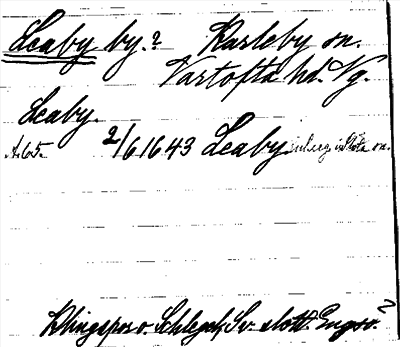 Leaby by.? Karleby sn.
Vartofta hd. Vg.
Leaby.
A:65. 2/6 1643 Leaby
Klingspor o. Schlegel, Sv. slott. Engsö.